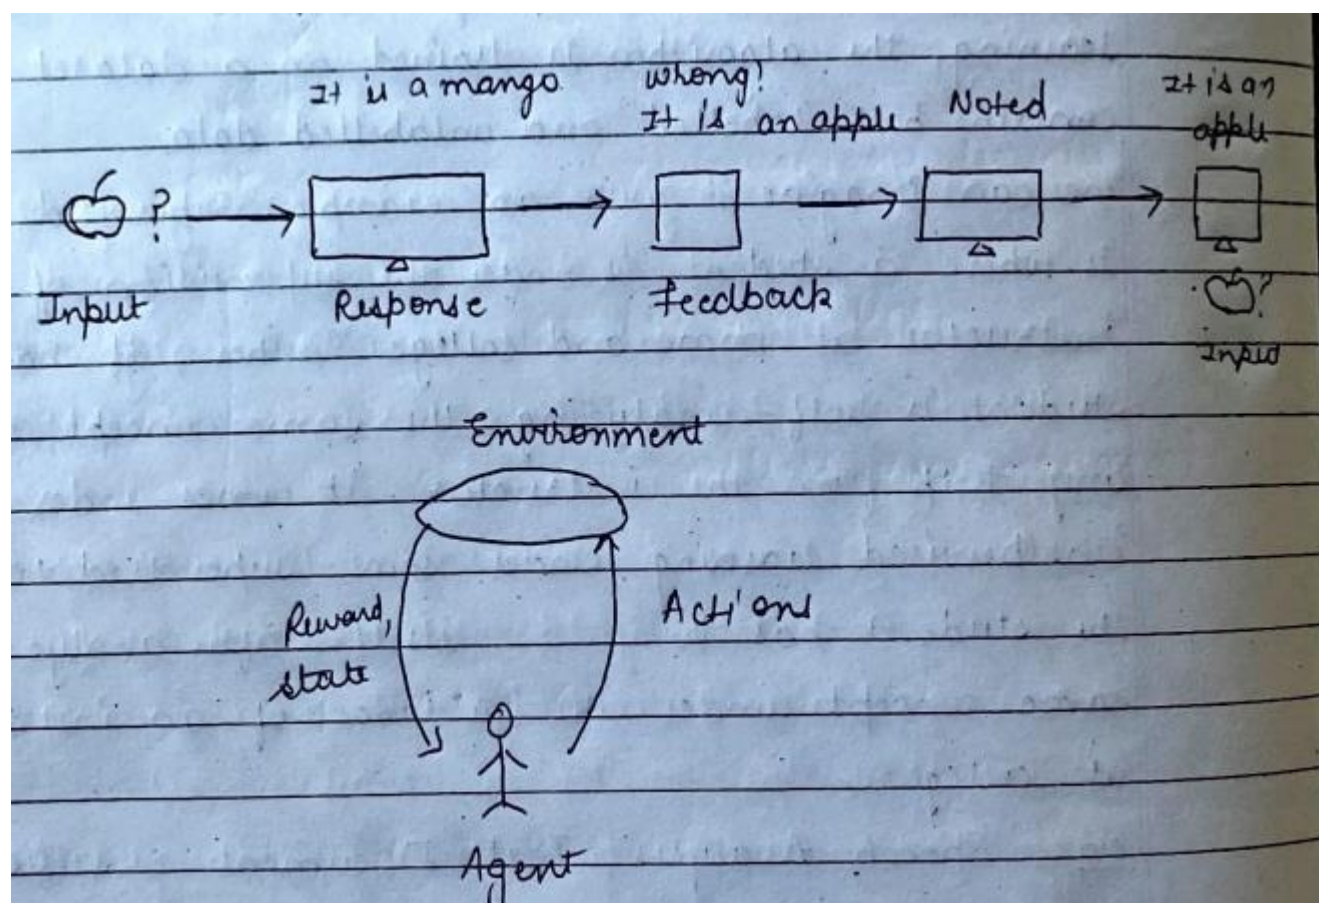 It is a mango
wrong!
It is an apple
Noted
It is an
apple
?
Input
Response
Feedback
?
Input
Environment
Reward,
state
Actions
Agent